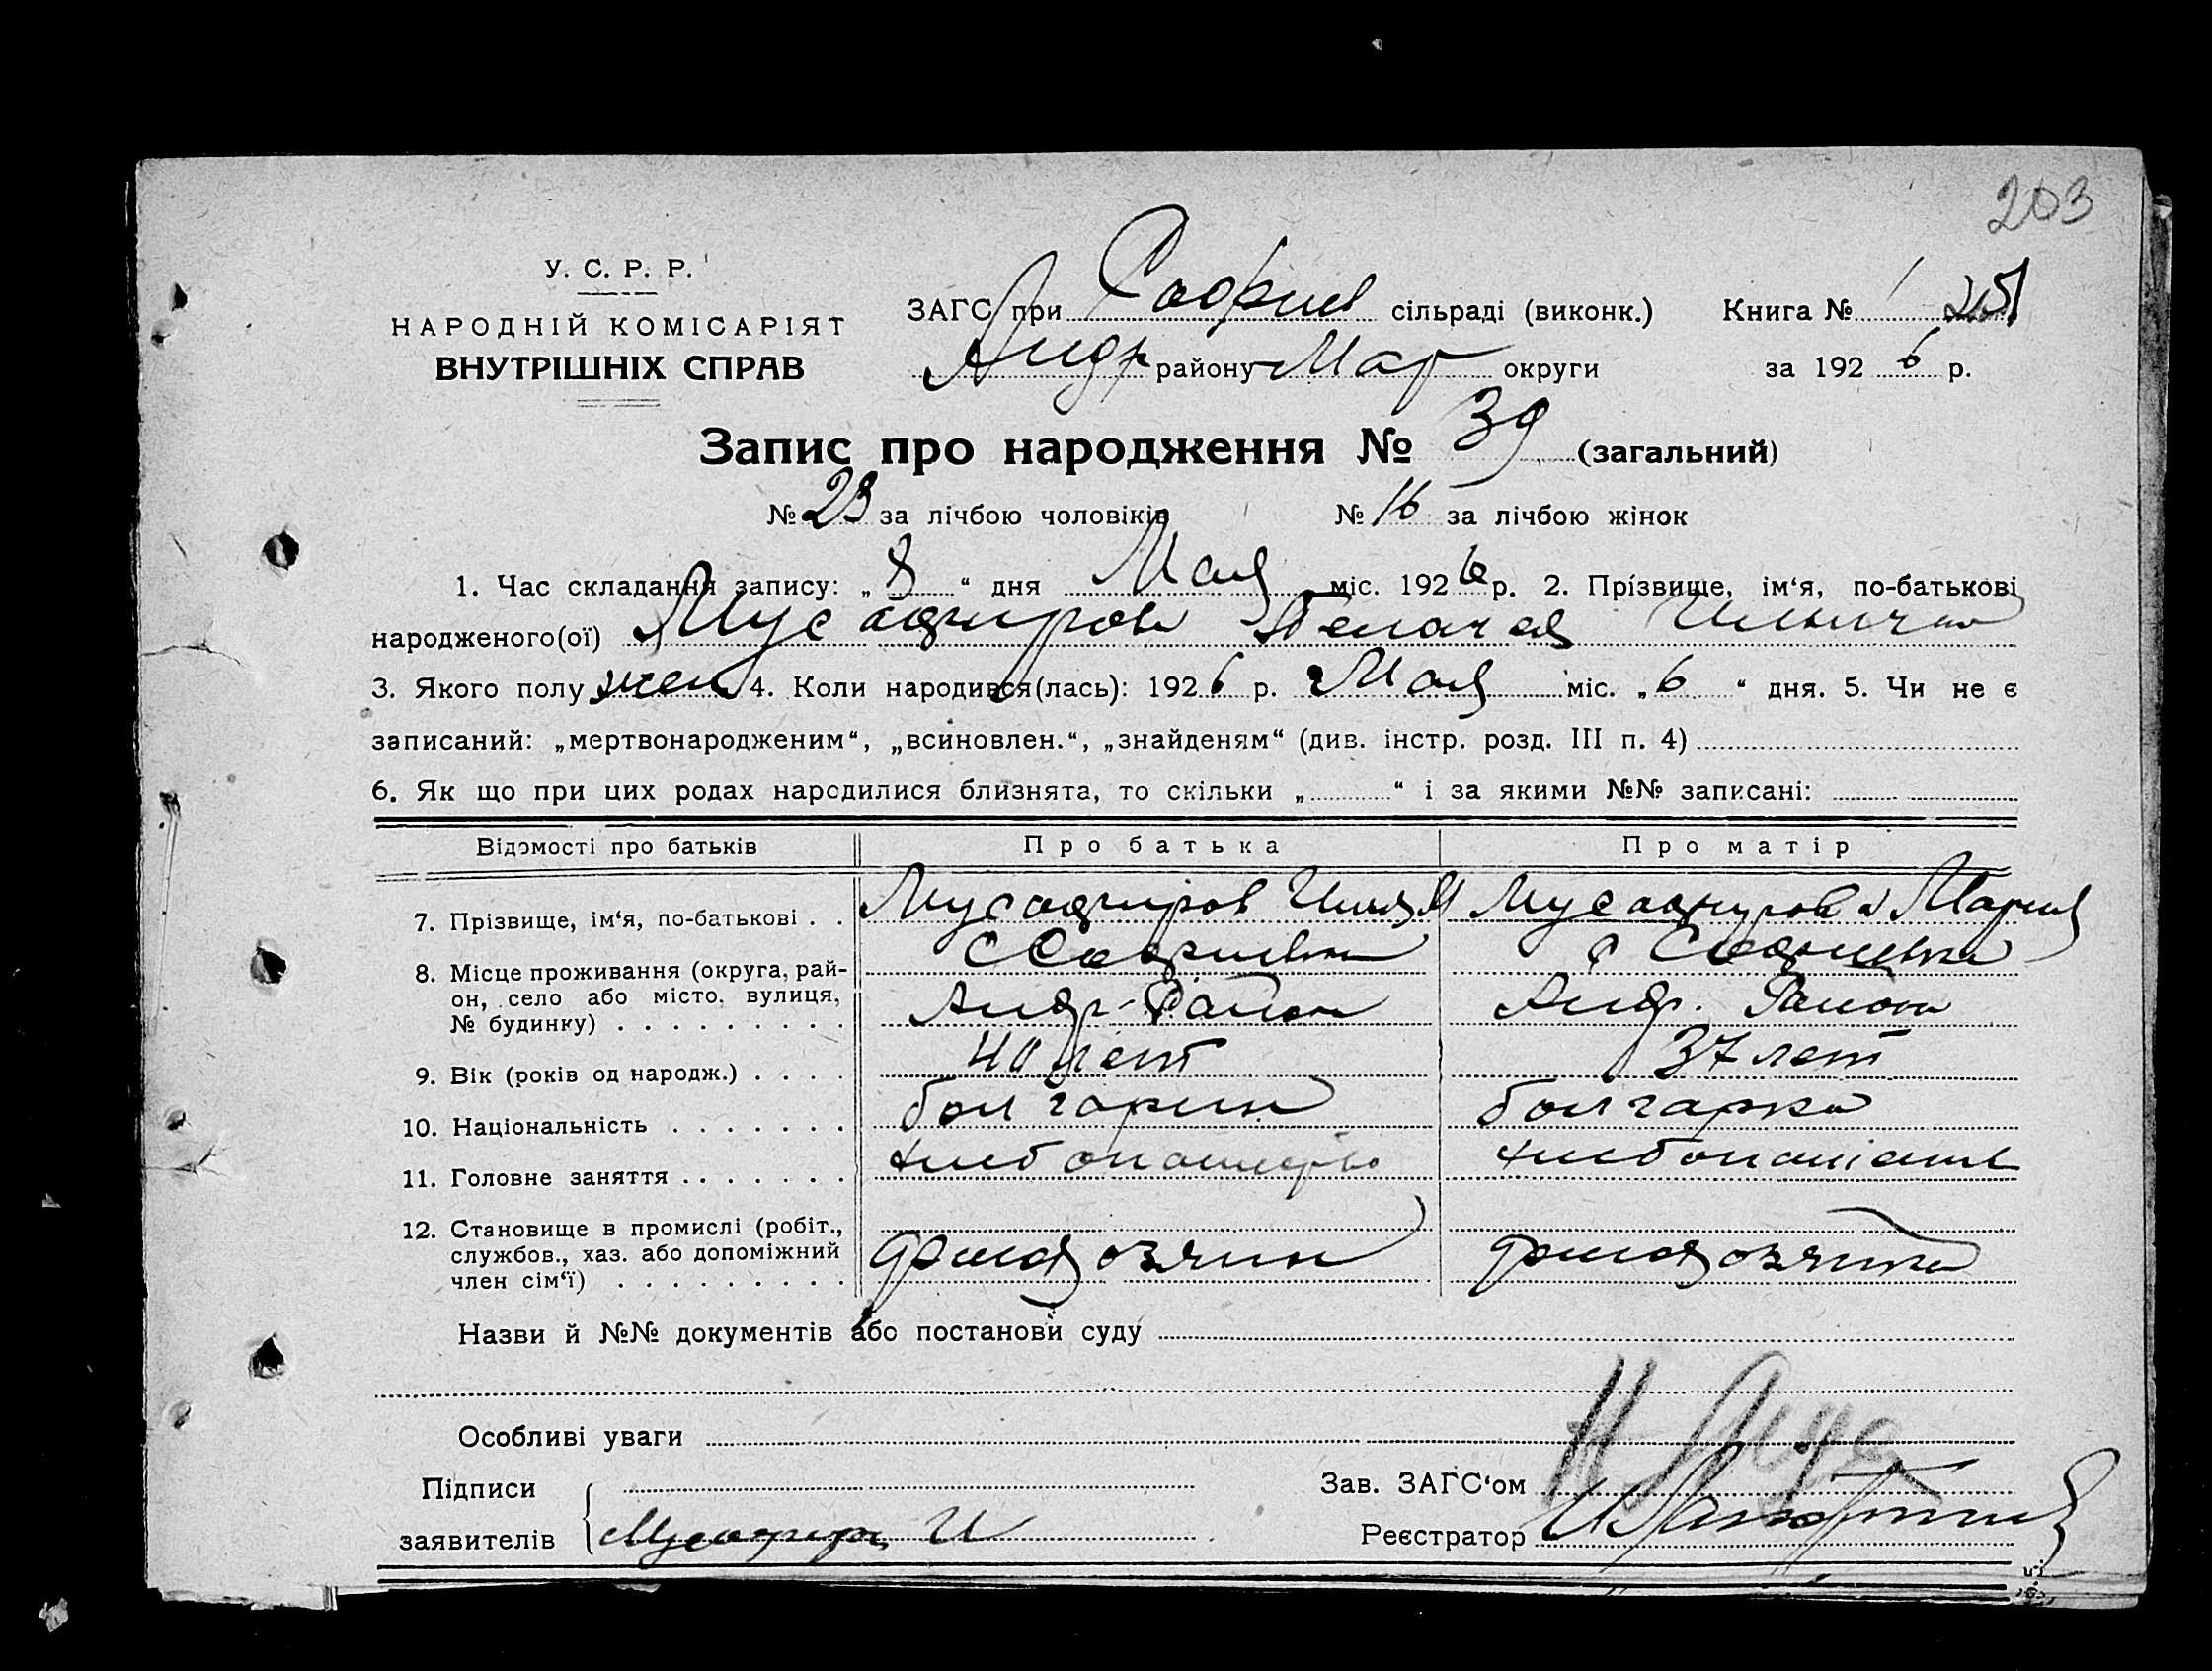 203
У. С. Р. Р.
НАРОДНІЙ КОМІСАРІЯТ
ВНУТРІШНІХ СПРАВ
ЗАГС при Софиев сільраді (виконк.) Книга № 251
Андр району Мар округи за 1926 р.
Запис про народження № 39 (загальний)
№ 23 за лічбою чоловіків № 16 за лічбою жінок
1. Час складання запису: „8“ дня Мая міс. 1926 р. 2. Прізвище, ім‘я, по-батькові
народженого(ої) Мусаджирова
3. Якого полу жен 4. Коли народився(лась): 1926 р. Мая міс. „6“ дня. 5. Чи не є
записаний: „мертвонародженим“, „всиновлен.“, „знайденям“ (див. інстр. розд. III п. 4)
6. Як що при цих родах народилися близнята, то скільки „ “ і за якими №№ записані:
Відомості про батьків Про батька Про матір
7. Прізвище, ім‘я, по-батькові . . Мусаджиров Илья М Мусаджирова Мария
8. Місце проживання (округа, рай-он, село або місто, вулиця, № будинку) . . . . . . . . . с Софиевка Андр. Район с Софиевка Андр. Района
9. Вік (років од народж.) . . . . 40 лет 37 лет
10. Національність . . . . . . . болгарин болгарка
11. Головне заняття . . . . . . . хлебопашество
12. Становище в промислі (робіт., службов., хаз. або допоміжний член сім‘ї) . . . . . . . . .
Назви й №№ документів або постанови суду
Особливі уваги
Підписи
заявителів
Зав. ЗАГС‘ом
Реєстратор